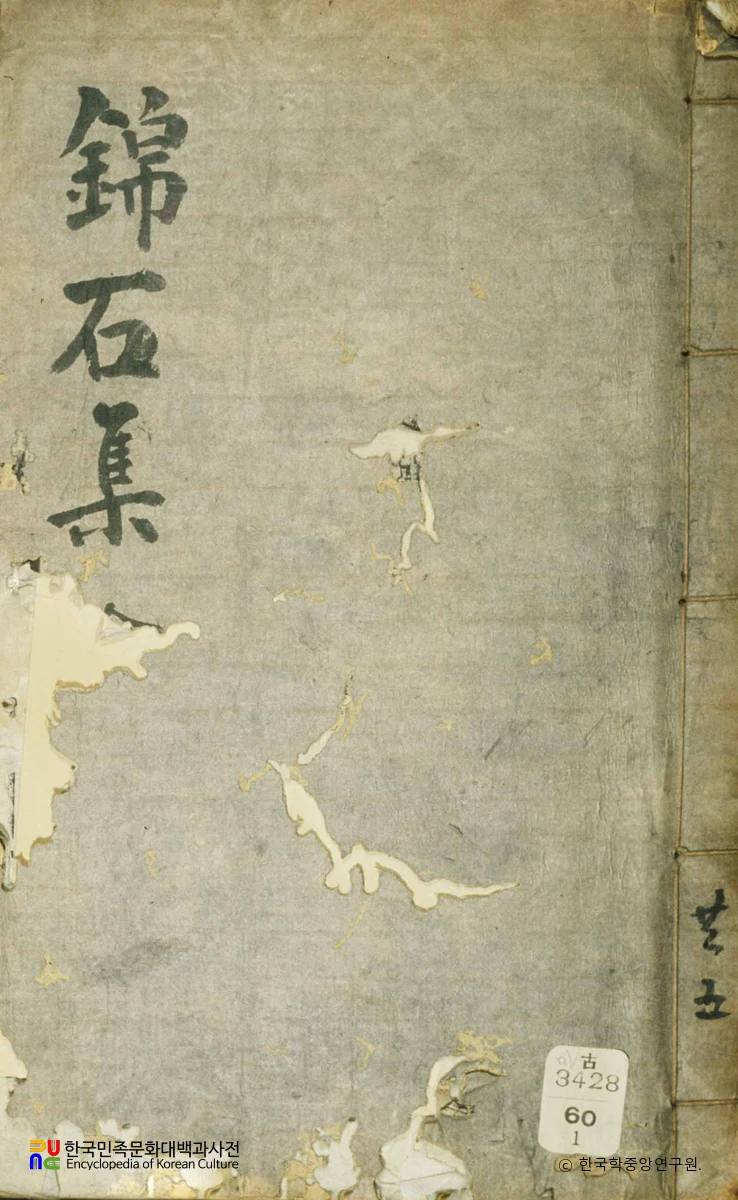 錦石集
共五
古
3428
60
1
한국민족문화대백과사전
Encyclopedia of Korean Culture
ⓒ 한국학중앙연구원.